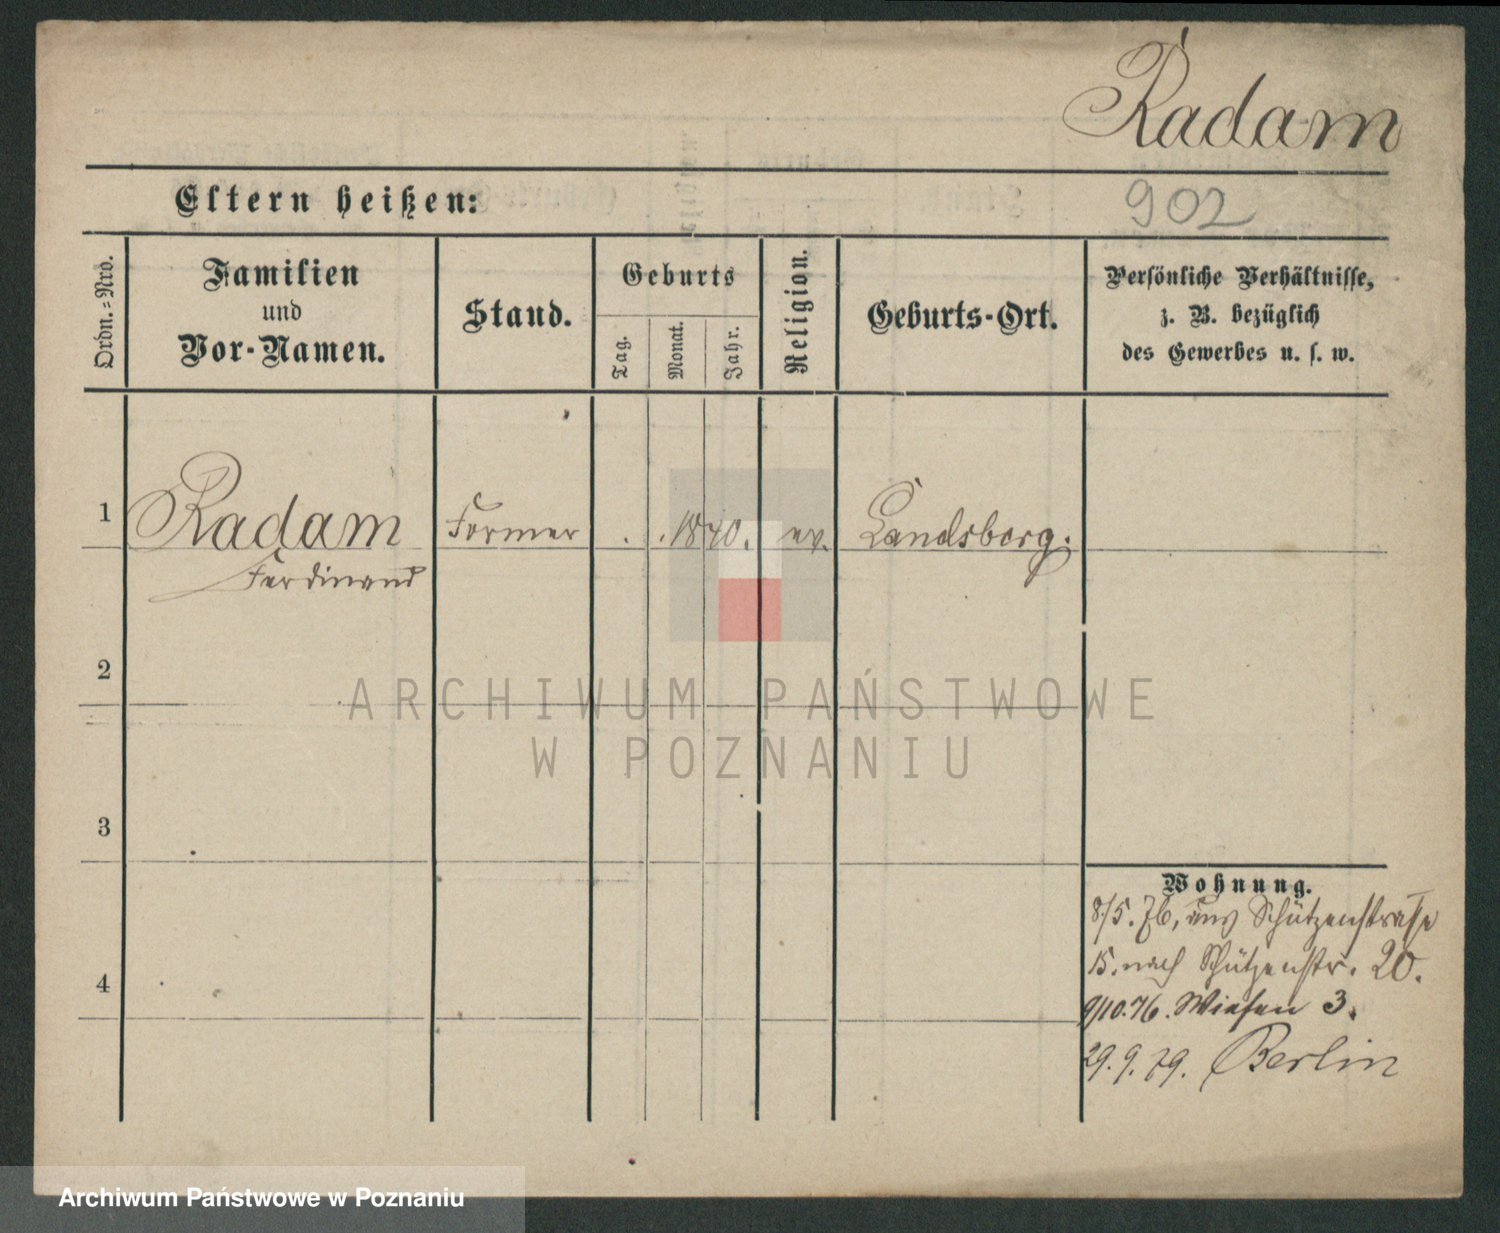 Radam
Eltern heißen:
902
Ordn.-Nro.
Familien
und
Vor-Namen.
Stand.
Geburts
Tag.
Monat.
Jahr.
Religion.
Geburts-Ort.
Persönliche Verhältnisse,
z. B. bezüglich
des Gewerbes u. s. w.
1
Radam
Ferdinand
Former
. . 1840.
ev.
Landsberg.
2
ARCHIWUM PAŃSTWOWE
W POZNANIU
3
Wohnung.
8/5. 76, aus Schützenstrasse
15. nach Schützenstr. 20.
4
9/10.76. Wiesen 3.
29. 9. 79. Berlin
Archiwum Państwowe w Poznaniu